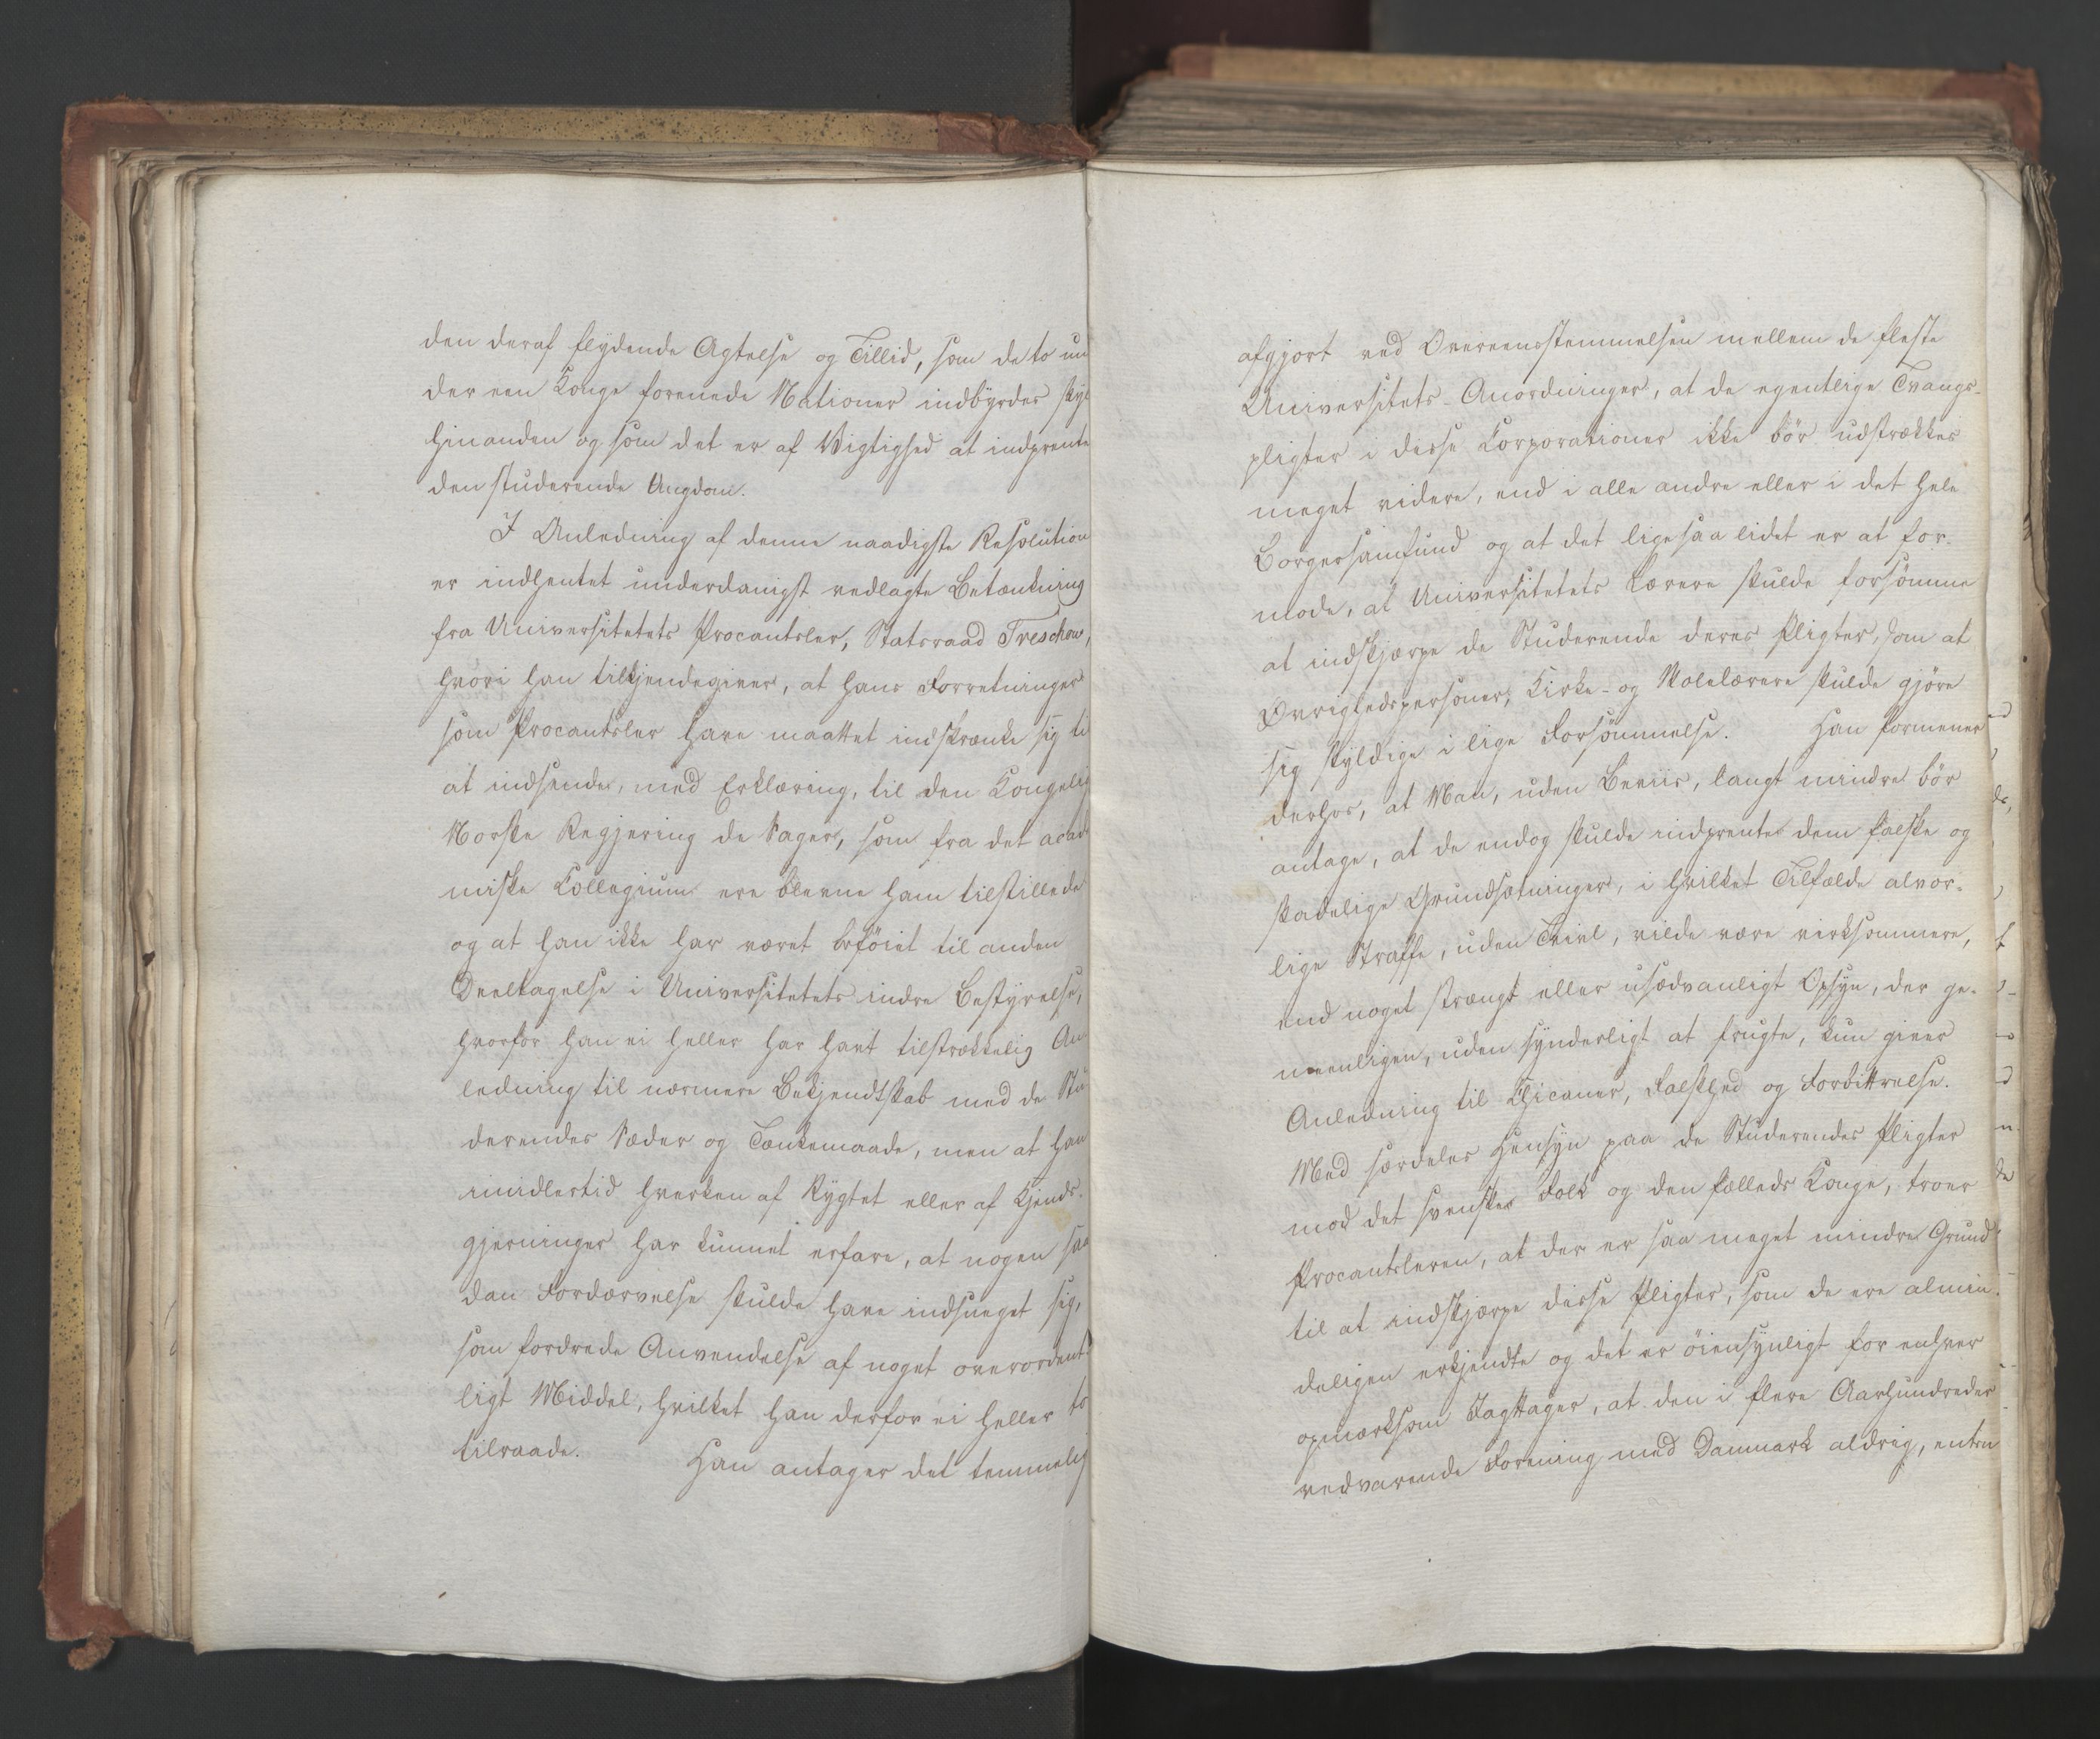 den deraf flydende Agtelse og Tillid, som de to un
der een Konge forenede Nationer indbyrdes skyl
hinanden og som det er af Vigtighed at indprente
den studerende Ungdom.
I Anledning af denne naadigste Resolution
er indhentet underdanigst vedlagte Betænkning
fra Universitetets Procantsler, Statsraad Treschow,
hvori han tilkjendegiver, at hans Forretninger
som Procantsler have maattet indskrænke sig ti
at indsende, med Erklæring, til den Kongelig
Norske Regjering de Sager, som fra det acade
miske Collegium ere blevne ham tilstillede
og at han ikke har været beföiet til anden
Deeltagelse i Universitetets indre Bestyrelse,
hvorfor han ei heller har havt tilstrækkelig An
ledning til nærmere Bekjendtskab med de Stu
derendes Sæder og Tænkemaade, men at han
imidlertid hverken af Rygtet eller af Kjends-
gjerninger har kunnet erfare, at nogen saa
dan Fordærvelse skulde have indsneget sig,
som fordrede Anvendelse af noget overordent-
ligt Middel, hvilket han derfor ei heller to
tilraade. Han antager det temmelig
afgjort ved Overeensstemmelsen mellem de fleste
Universitets-Anordninger, at de egentlige Tvangs-
pligter i disse Corporationer ikke bör udstrækkes
meget videre, end i alle andre eller i det hele
Borgersamfund og at det ligesaa lidet er at for-
mode, at Universitetets Lærere skulde forsömme
at indskjærpe de Studerende deres Pligter, som at
Övrighedspersoner, Kirke- og Skolelærere skulde gjöre
sig skyldige i lige Forsömmelse. Han formener
derhos, at Man, uden Beviis, langt mindre bör
antage, at de endog skulde indprente dem falske og
skadelige Grundsætninger, i hvilket Tilfælde alvor-
lige Straffe, uden Tvivl, vilde være virksommere,
end noget strængt eller usædvanligt Opsyn, der ge-
meenligen, uden synderligt at frugte, kun giver
Anledning til Chicaner, Falskhed og Forbittrelse.
Med særdeles Hensyn paa de Studerendes Pligter
mod det svenske Folk og den fælleds Konge, troer
Procantsleren, at der er saa meget mindre Grund
til at indskjærpe disse Pligter, som de ere almin-
deligen erkjendte og det er öiensynligt for enhver
opmærksom Iagttager, at den i flere Aarhundreder
vedvarende Forening med Danmark aldrig, enten